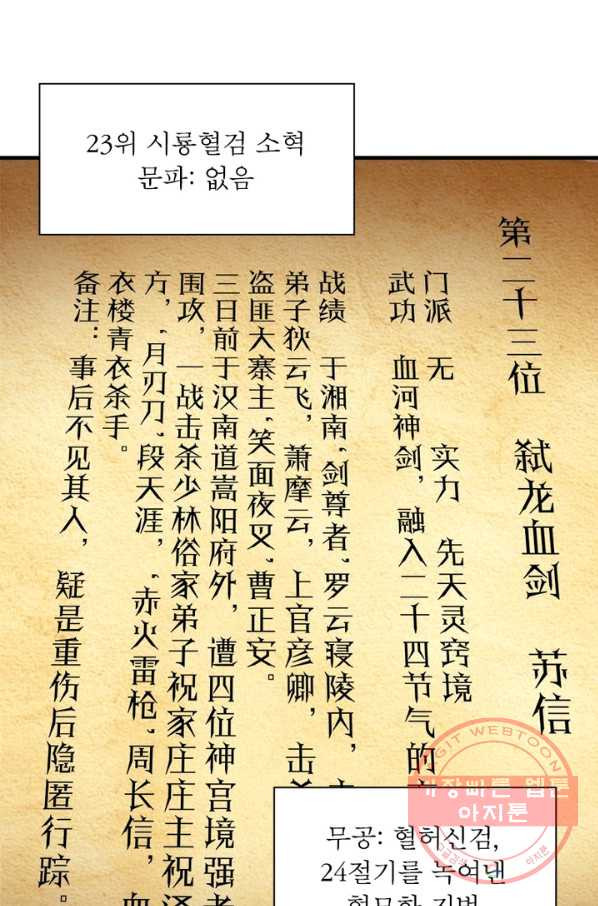 23위 시룡혈검 소혁
문파: 없음
第二十三位 弑龙血剑 苏信
门派 无 实力 先天灵窍境
武功 血河神剑，融入二十四节气的
战绩 于湘南，剑尊者，罗云寝陵内，
弟子狄云飞，萧摩云，上官彦卿，击
盗匪大寨主，笑面夜叉，曹正安。
三日前于汉南道嵩阳府外，遭四位神宫境强者
围攻，一战击杀少林俗家弟子祝家庄庄主祝泽
方，月刃刀，段天涯，赤火雷枪，周长信，血
衣楼青衣杀手。
备注：事后不见其人，疑是重伤后隐匿行踪。
무공: 혈허신검,
24절기를 녹여낸
GIT WEBTOON
가장빠른 웹툰
아지툰
아지트